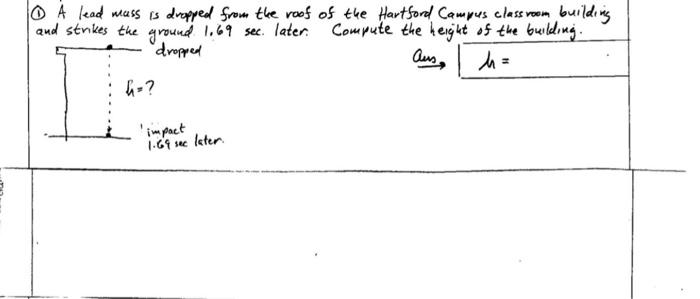 ① A lead mass is dropped from the roof of the Hartford Campus classroom building
and strikes the ground 1.69 sec. later. Compute the height of the building.
dropped
Ans, h =
h=?
impact
1.69 sec later.